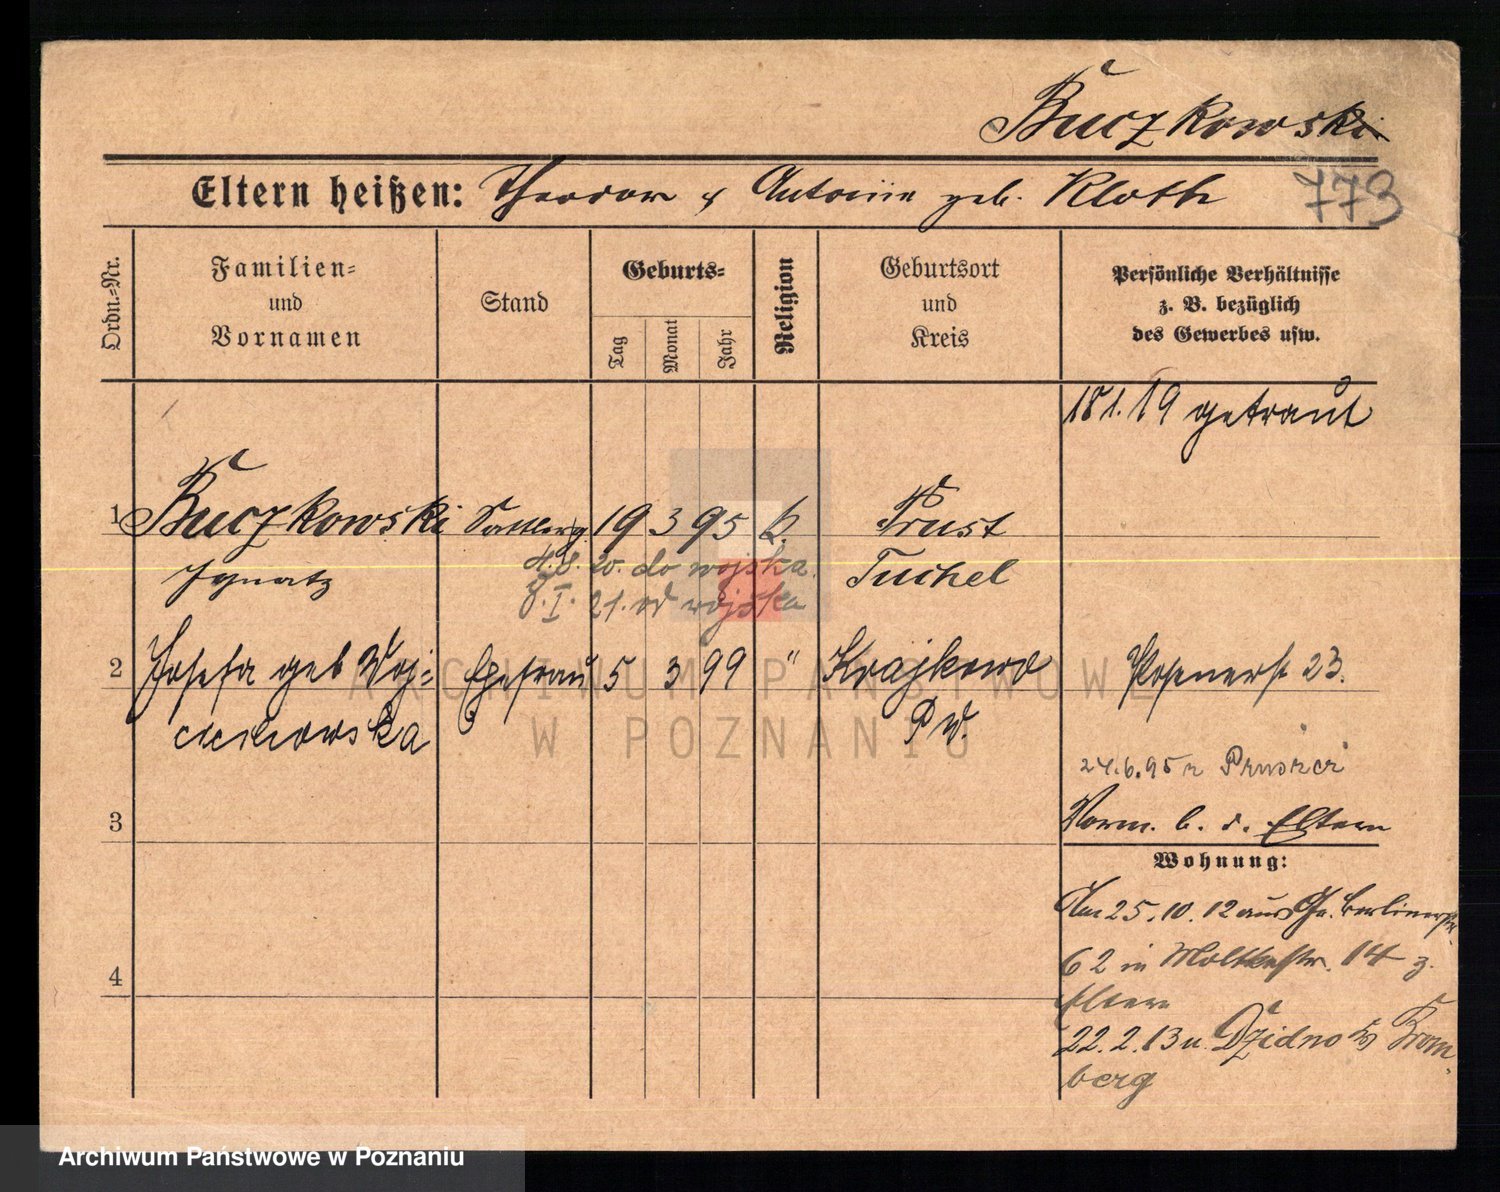 Buczkowski
Eltern heißen: Theodor & Antonie geb. Kloth
773
Ordn.=Nr.
Familien=
und
Vornamen
Stand
Geburts=
Tag
Monat
Jahr
Religion
Geburtsort
und
Kreis
Persönliche Verhältnisse
z. B. bezüglich
des Gewerbes usw.
18 1. 19 getraut
1 Buczkowski Sattlerg. 19 3 95 k. Prust
Ignatz
4.8.20. do wojska.
8.I.21. od wojska
Tuchel
2 Josefa geb Woj= Ehefrau 5 3 99 " Krajkowo Posenerst 23.
ciechowska
P W.
24.6.95 z Pruszcz
3
Vorm. b. d. Eltern
Wohnung:
Am 25.10.12 aus Gr. Berlinerstr.
62 in Moltkestr. 14 z.
4
Eltern
22.2.13 n. Dzidno Kr Brom
berg
ARCHIWUM PAŃSTWOWE
W POZNANIU
Archiwum Państwowe w Poznaniu